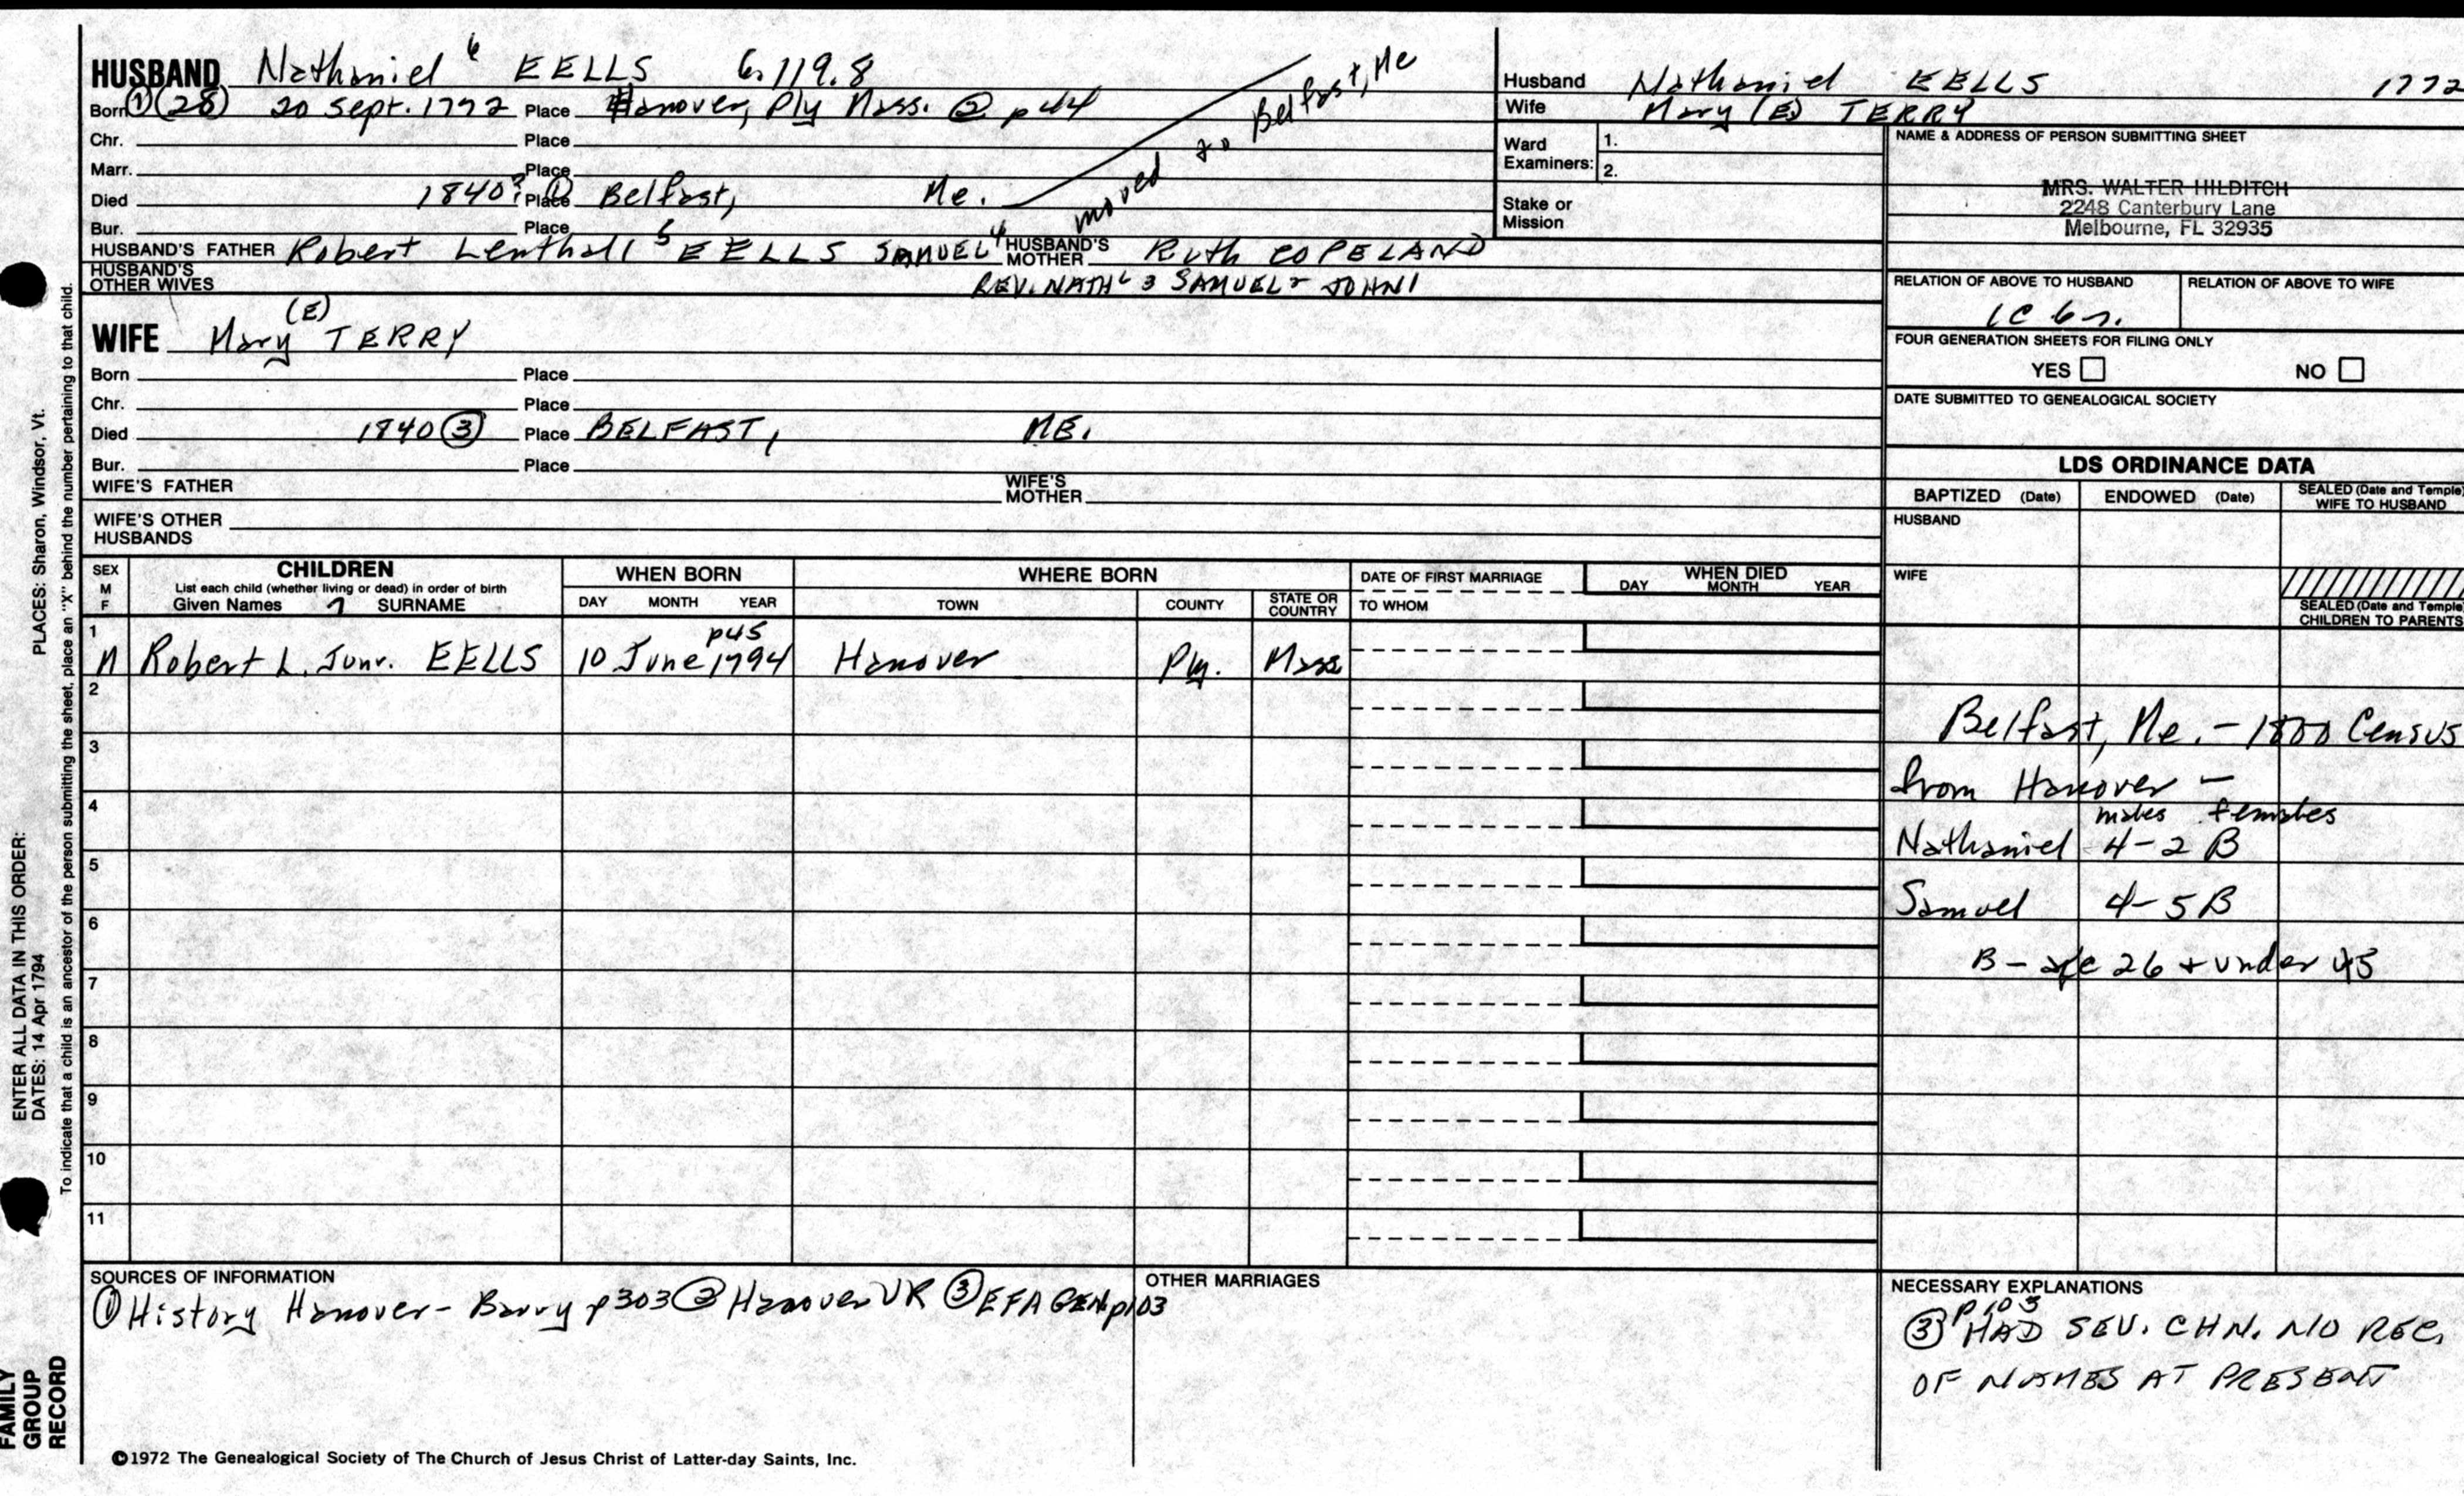 HUSBAND Nathaniel 6 EELLS 6.119.8
Born ① (28) 20 Sept. 1772 Place Hanover, Ply Mass. ② p44
Chr. Place
Marr. Place
Died 1840? ① Place Belfast, Me.
moved to Belfast, Me
Bur. Place
HUSBAND'S FATHER Robert Lenthall 5 EELLS SAMUEL 4 HUSBAND'S MOTHER Ruth COPELAND
HUSBAND'S OTHER WIVES REV. NATHL 3 SAMUEL 2 JOHN 1
WIFE Mary (E) TERRY
Born Place
Chr. Place
Died 1840 ③ Place BELFAST, ME.
Bur. Place
WIFE'S FATHER WIFE'S MOTHER
WIFE'S OTHER HUSBANDS
Husband Nathaniel EELLS 1772
Wife Mary (E) TERRY
Ward Examiners: 1.
2.
Stake or Mission
NAME & ADDRESS OF PERSON SUBMITTING SHEET
MRS. WALTER HILDITCH
2248 Canterbury Lane
Melbourne, FL 32935
RELATION OF ABOVE TO HUSBAND RELATION OF ABOVE TO WIFE
1C 6r.
FOUR GENERATION SHEETS FOR FILING ONLY
YES NO
DATE SUBMITTED TO GENEALOGICAL SOCIETY
LDS ORDINANCE DATA
BAPTIZED (Date) ENDOWED (Date) SEALED (Date and Temple) WIFE TO HUSBAND
HUSBAND
WIFE
SEALED (Date and Temple) CHILDREN TO PARENTS
SEX M F CHILDREN WHEN BORN WHERE BORN DATE OF FIRST MARRIAGE WHEN DIED
List each child (whether living or dead) in order of birth
Given Names 7 SURNAME DAY MONTH YEAR TOWN COUNTY STATE OR COUNTRY TO WHOM DAY MONTH YEAR
1 p45
M Robert L. Junr. EELLS 10 June 1794 Hanover Ply. Mass
2
3
4
5
6
7
8
9
10
11
Belfast, Me. - 1800 Census
from Hanover -
males females
Nathaniel 4-2 B
Samuel 4-5 B
B - age 26 + under 45
SOURCES OF INFORMATION
① History Hanover - Barry p303 ② Hanover VR ③ EFA GEN. p103
OTHER MARRIAGES
NECESSARY EXPLANATIONS
p103
③ HAD SEV. CHN. NO REC.
OF NAMES AT PRESENT
©1972 The Genealogical Society of The Church of Jesus Christ of Latter-day Saints, Inc.
FAMILY
GROUP
RECORD
ENTER ALL DATA IN THIS ORDER:
DATES: 14 Apr 1794 PLACES: Sharon, Windsor, Vt.
To indicate that a child is an ancestor of the person submitting the sheet, place an "X" behind the number pertaining to that child.